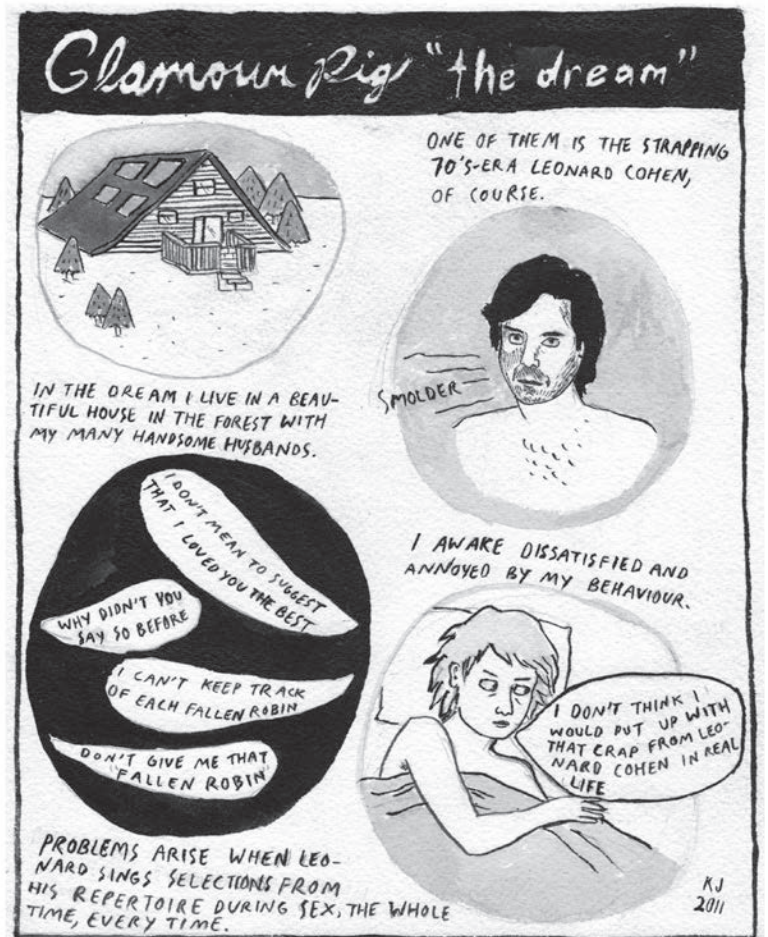 Glamour Pig "the dream"
IN THE DREAM I LIVE IN A BEAU-
TIFUL HOUSE IN THE FOREST WITH
MY MANY HANDSOME HUSBANDS.
ONE OF THEM IS THE STRAPPING
70'S-ERA LEONARD COHEN,
OF COURSE.
SMOLDER
I DON'T MEAN TO SUGGEST
THAT I LOVED YOU THE BEST
WHY DIDN'T YOU
SAY SO BEFORE
I CAN'T KEEP TRACK
OF EACH FALLEN ROBIN
DON'T GIVE ME THAT
"FALLEN ROBIN"
PROBLEMS ARISE WHEN LEO-
NARD SINGS SELECTIONS FROM
HIS REPERTOIRE DURING SEX, THE WHOLE
TIME, EVERY TIME.
I AWAKE DISSATISFIED AND
ANNOYED BY MY BEHAVIOUR.
I DON'T THINK I
WOULD PUT UP WITH
THAT CRAP FROM LEO-
NARD COHEN IN REAL
LIFE
KJ
2011